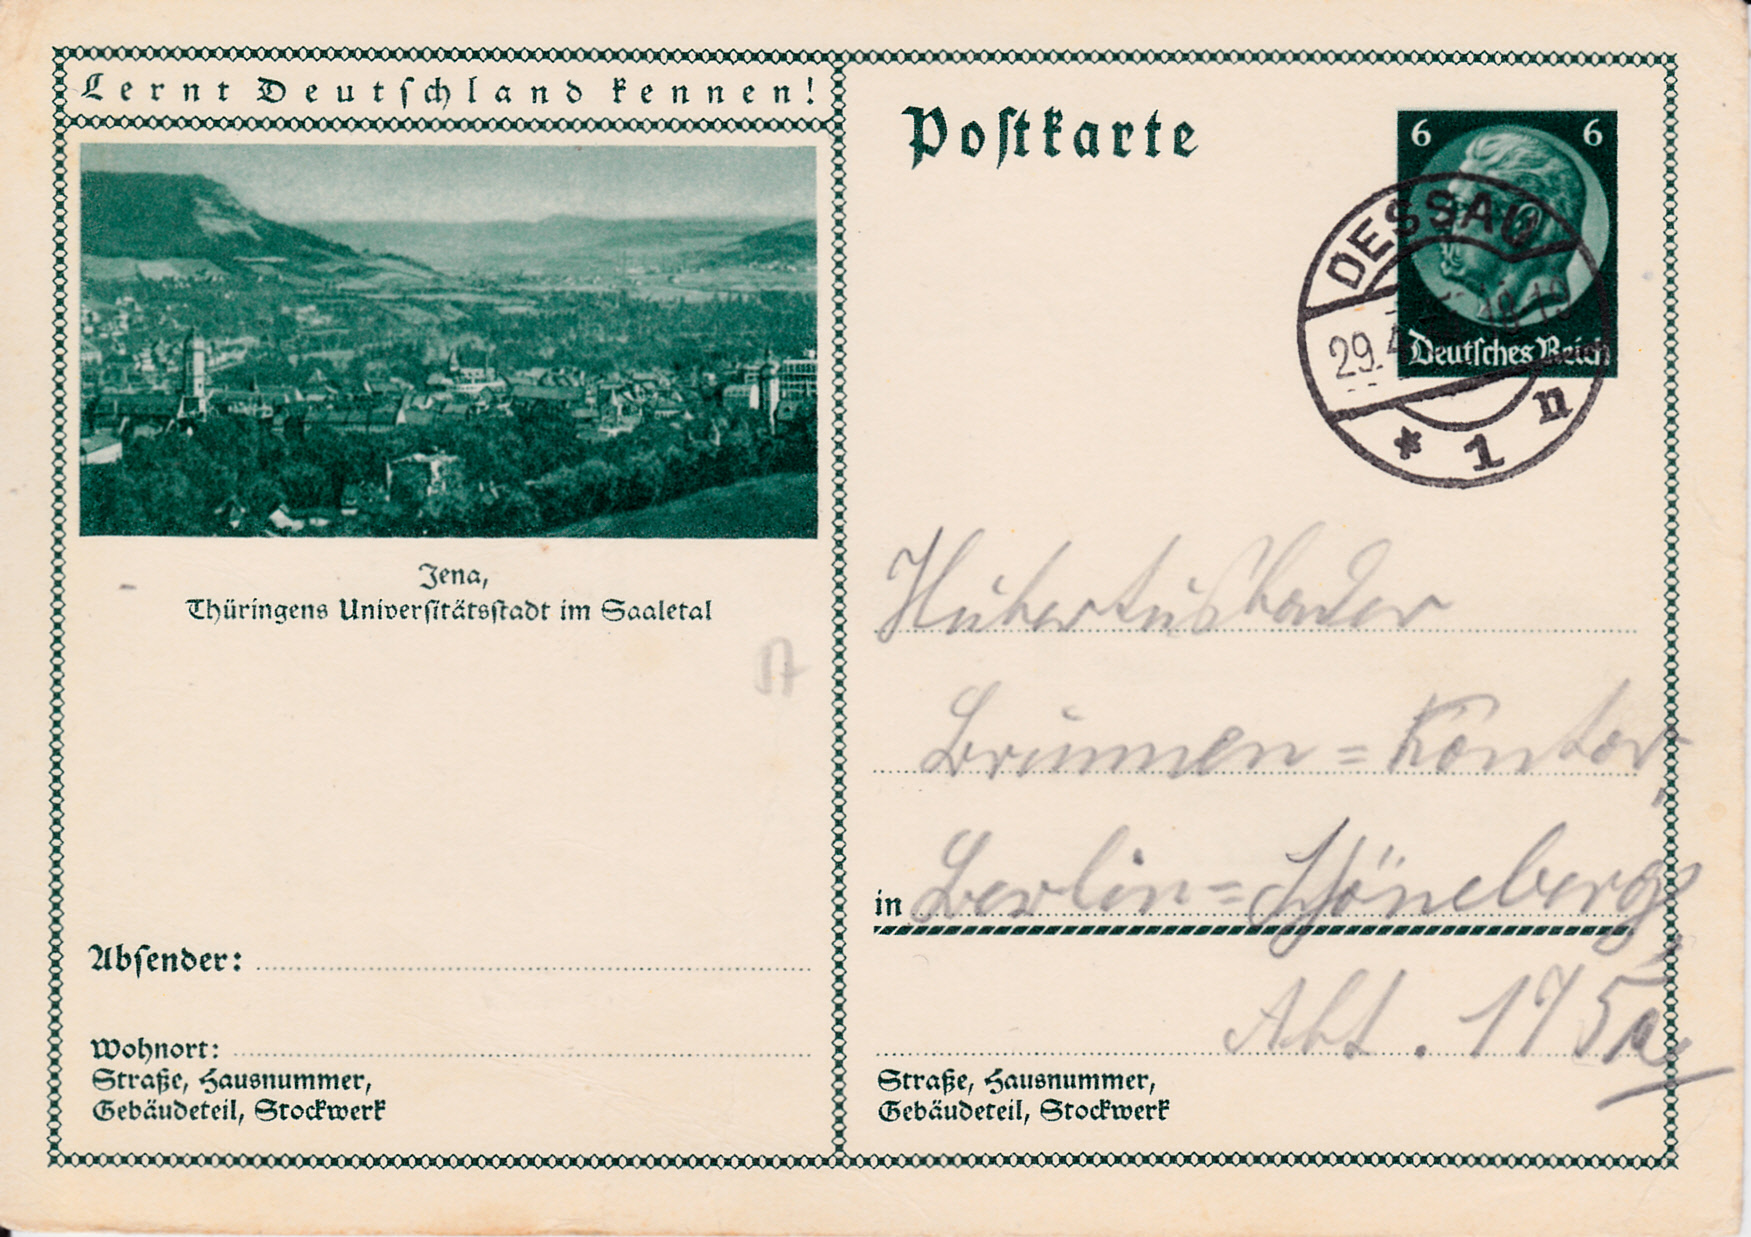 Lernt Deutschland kennen!
Jena,
Thüringens Universitätsstadt im Saaletal
Absender:
Wohnort:
Straße, Hausnummer,
Gebäudeteil, Stockwerk
Postkarte
6 6
Deutsches Reich
DESSAU
29.4
18-19
* 1 n
Hubertusbader
Brunnen=Kontor
in Berlin=Schöneberg,
Abt. 175a
Straße, Hausnummer,
Gebäudeteil, Stockwerk